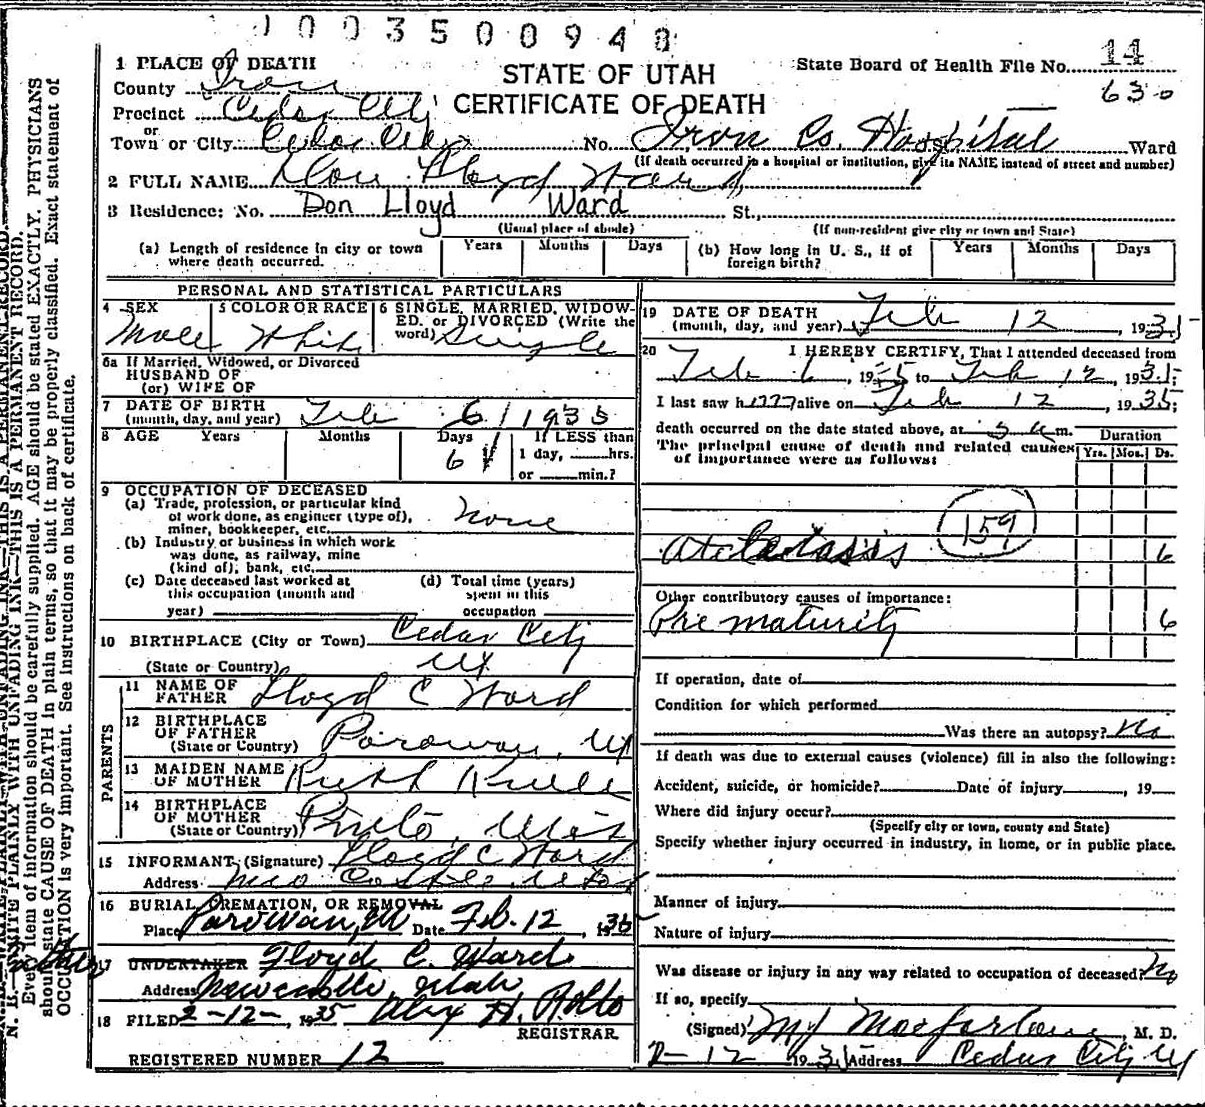 1003500948
1 PLACE OF DEATH
STATE OF UTAH
State Board of Health File No. 14
County Iron
CERTIFICATE OF DEATH
630
Precinct Cedar City
or
Town or City Cedar City No. Iron Co. Hospital Ward
(If death occurred in a hospital or institution, give its NAME instead of street and number)
2 FULL NAME Don Lloyd Ward
3 Residence: No. Don Lloyd Ward St.,
(Usual place of abode) (If non-resident give city or town and State)
(a) Length of residence in city or town where death occurred. Years Months Days (b) How long in U. S., if of foreign birth? Years Months Days
PERSONAL AND STATISTICAL PARTICULARS
4 SEX Male
5 COLOR OR RACE White
6 SINGLE, MARRIED, WIDOW-
ED, or DIVORCED (Write the
word) Single
6a If Married, Widowed, or Divorced
HUSBAND OF
(or) WIFE OF
7 DATE OF BIRTH
(month, day, and year) Feb 6 1935
8 AGE Years Months Days If LESS than
6 1 day, hrs.
or min.?
9 OCCUPATION OF DECEASED
(a) Trade, profession, or particular kind
of work done, as engineer (type of),
miner, bookkeeper, etc. none
(b) Industry or business in which work
was done, as railway, mine
(kind of); bank, etc.
(c) Date deceased last worked at
this occupation (month and
year)
(d) Total time (years)
spent in this
occupation
10 BIRTHPLACE (City or Town) Cedar City
(State or Country) Ut
PARENTS
11 NAME OF
FATHER Lloyd C Ward
12 BIRTHPLACE
OF FATHER
(State or Country) Parowan, Ut
13 MAIDEN NAME
OF MOTHER Ruth
14 BIRTHPLACE
OF MOTHER
(State or Country) Pinto,
15 INFORMANT (Signature) Lloyd C Ward
Address
16 BURIAL, CREMATION, OR REMOVAL
Place Parowan, Ut Date Feb. 12, 1935
17 UNDERTAKER Lloyd C. Ward
Address Newcastle, Utah
18 FILED 2-12-, 1935 Alex H. Rollo
REGISTRAR
REGISTERED NUMBER 12
19 DATE OF DEATH
(month, day, and year) Feb 12, 1935
20 I HEREBY CERTIFY, That I attended deceased from
Feb 6, 1935 to Feb 12, 1935;
I last saw him alive on Feb 12, 1935;
death occurred on the date stated above, at 5 a m.
The principal cause of death and related causes
of importance were as follows:
Duration
Yrs. Mos. Ds.
159
Atelectasis 6
Other contributory causes of importance:
Prematurity 6
If operation, date of
Condition for which performed
Was there an autopsy? No
If death was due to external causes (violence) fill in also the following:
Accident, suicide, or homicide? Date of injury, 19
Where did injury occur?
(Specify city or town, county and State)
Specify whether injury occurred in industry, in home, or in public place.
Manner of injury
Nature of injury
Was disease or injury in any way related to occupation of deceased? No
If so, specify
(Signed) Macfarlane, M. D.
2-12 1935 Address Cedar City Ut
N. B.—WRITE PLAINLY WITH UNFADING INK—THIS IS A PERMANENT RECORD.
Every item of information should be carefully supplied. AGE should be stated EXACTLY. PHYSICIANS
should state CAUSE OF DEATH in plain terms, so that it may be properly classified. Exact statement of
OCCUPATION is very important. See instructions on back of certificate.